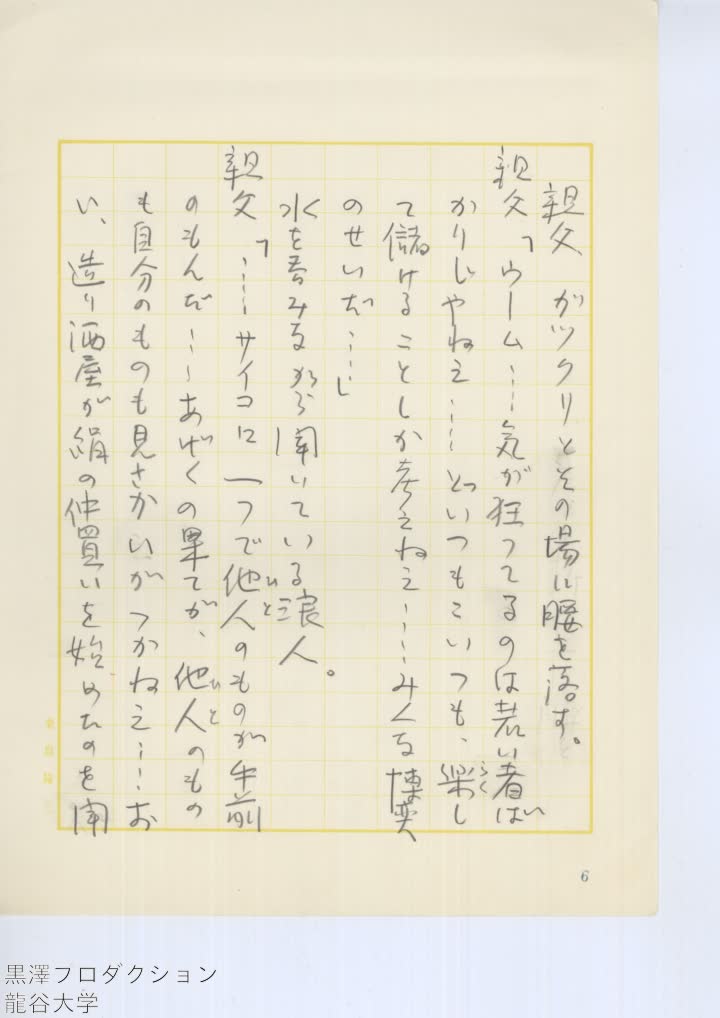 親父、ガックリとその場に腰を落す。
親父「ウーム……気が狂ってるのは若い者ば
かりじゃねえ……どいつもこいつも、楽し
て儲けることしか考えねえ……みんな博奕
のせいだ……」
水を呑みながら聞いている浪人。
親父「……サイコロ一つで他人のものが手前
のもんだ……あげくの果てが、他人のもの
も自分のものも見さかいがつかねえ……お
い、造り酒屋が絹の仲買いを始めたのを聞
6
黒澤プロダクション
龍谷大学